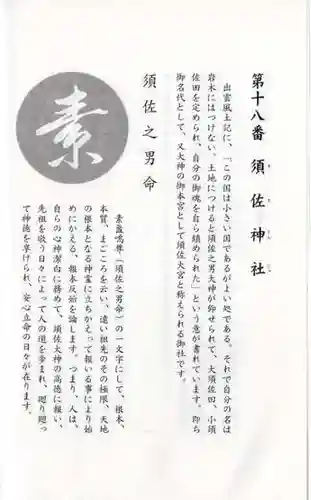 第十八番 須佐神社
すさじんじゃ
出雲風土記に、「この国は小さい国であるがよい処である。それで自分の名は
岩木にはつけない。土地につけると須佐之男大神が仰せられて、大須佐田、小須
佐田を定められ、自分の御魂を自ら鎮められた」という意が書れています。即ち
御名代として、又大神の御本宮として須佐大宮と称えられる御社です。
須佐之男命
素
素盞嗚尊(須佐之男命)の一文字にして、根本、
本質、まごころを云い、遠い祖先のその極限、天地
の根本となる神霊に立ちかえって報いる事により始
めにかえる、根本反始を論します。つまり、人は、
自らの心神潔白に務めて、須佐大神の高徳に報い、
先祖を敬う日々によって人の道を歩まれ、廻り廻っ
て神徳を享けられ、安心立命の日々が在ります。